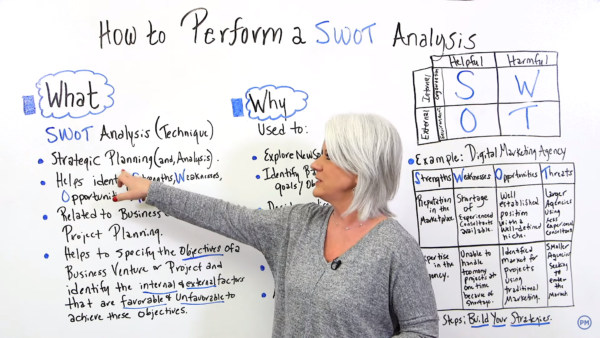 How to Perform a SWOT Analysis
What
SWOT Analysis (Technique)
Strategic Planning (and, Analysis).
Helps Weaknesses,
Related to Business
Project Planning.
Helps to Specify the Objectives of a
Business Venture or Project and
identify the internal & external factors
that are favorable & Unfavorable to
achieve these objectives.
Why
Used to:
Explore New
Identify
goals/
Helpful Harmful
Internal
External
S W
O T
Example: Digital Marketing Agency
Strengths Weaknesses Opportunities Threats
Reputation
in the
Marketplace
Shortage
of
Experienced
Consultants
available.
Well
established
position
with a
well-defined
niche.
Larger
Agencies
Using
Consultants
in the
Unable to
handle
too many
projects at
one time
because of
Shortage.
Identified
Market for
projects
using
traditional
Marketing.
Smaller
Agencies
Seeking
to enter
the
Market
Steps: Build Your Strategies.
PM